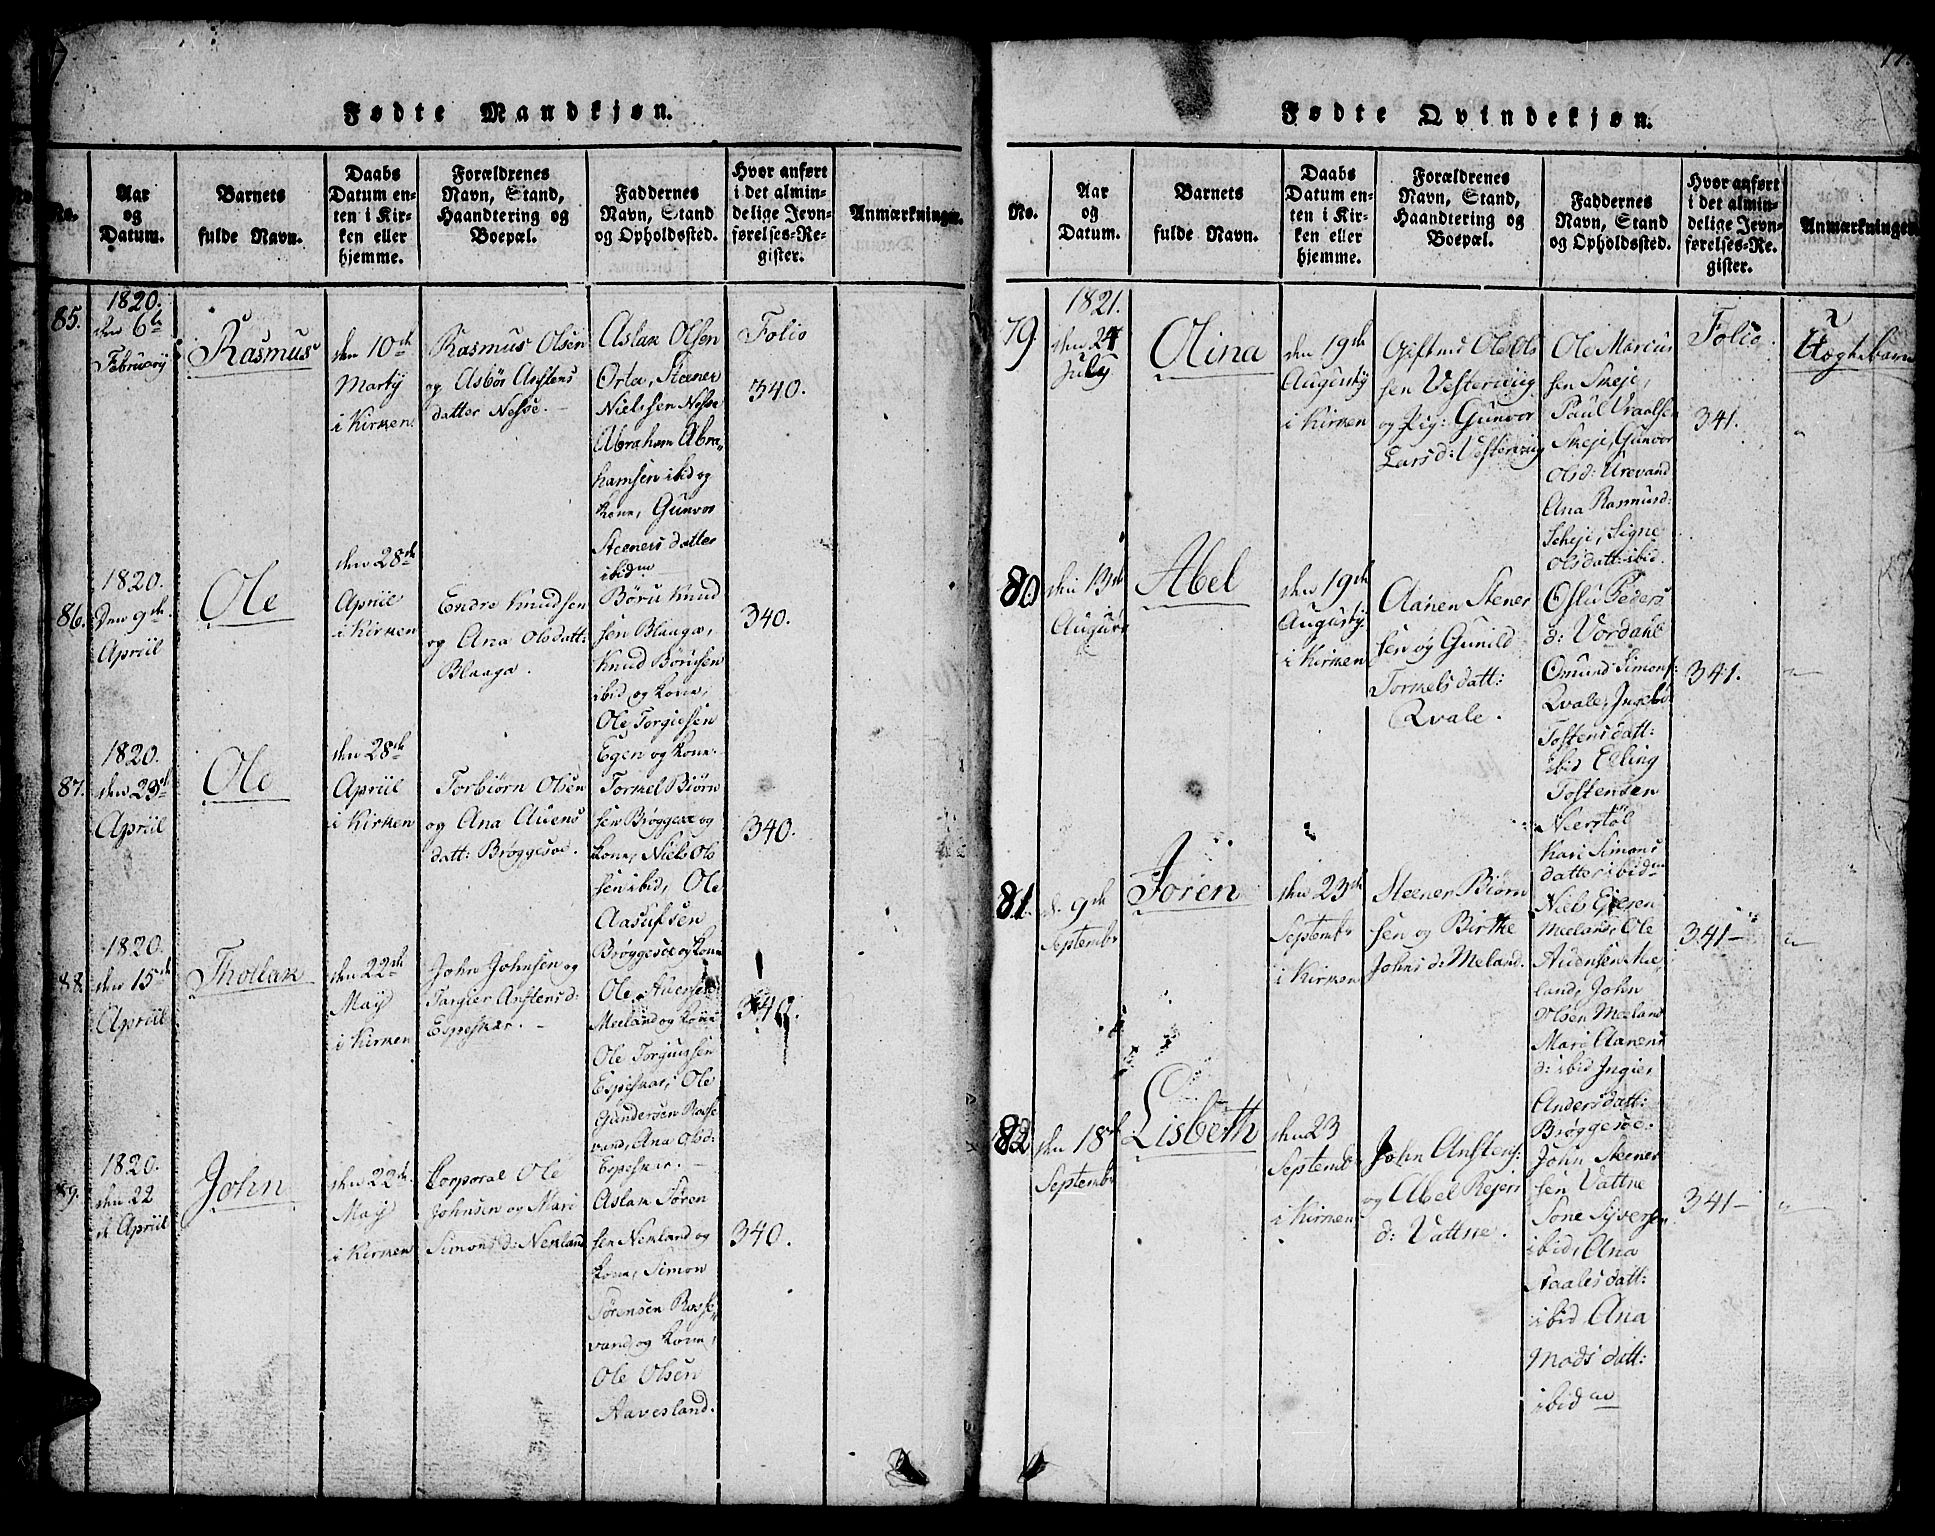 Fødte Mandkjøn.
No.
Aar
og
Datum.
Barnets
fulde Navn.
Daabs
Datum en-
ten i Kir-
ken eller
hjemme.
Forældrenes
Navn, Stand,
Haandtering og
Boepæl.
Faddernes
Navn, Stand
og Opholdssted.
Hvor anført
i det almin-
delige Jevn-
førelses-Re-
gister.
Anmærkninger.
85.
1820.
den 6te
Februarÿ
Rasmus
den 10de
Martÿ
i Kirken.
Rasmus Olsen
og Asbør Anstens
datter Nesse.
Aslak Olsen
Orte, Steener
Nielssen Nesse
Abraham Abra-
hamsen ibid og
Kone, Gunvor
Steeners datter
ibidm
Folio
340.
86.
1820.
Den 9de
Apriil
Ole
den 28de
Apriil
i Kirken
Endre Knudsen
og Ana Olsdatt:
Blaaga.
Børu Knud
sen Blaaga,
Knud Børusen
ibid og Kone,
Ole Torgiersen
Egen og Kone.
340.
87.
1820.
den 23de
Apriil
Ole
den 28de
Apriil
i Kirken
Torbiørn Olsen
og Ana Auens
datt: Brøggesøe.
Tormel Biørn
sen Brøggesøe og
Kone, Niels Ols
sen ibid, Ole
Aasulfsen
Brøggesøe og Kone
340.
88.
1820.
den 15de
Apriil
Thollak
den 22de
Maÿ
i Kirken
John Johnsen og
Targier Anstensd:
Espeskar.
Ole Auensen
Meeland og Kone
Ole Torgiussen
Espeskar, Ole
Gundersen Rosse
vand, Ana Olsd:
Espeskar.
340.
89.
1820.
den 22
de Apriil
John
den 22de
Maÿ
i Kirken
Corporal Ole
Johnsen og Mari
Simonsd: Nenland
Aslak Søren
sen Nenland og
Kone, Simon
Sørensen Rosse
vand og Kone,
Ole Olsen
Aavesland.
340.
Fødte Qvindekjøn.
No.
Aar
og
Datum.
Barnets
fulde Navn.
Daabs
Datum en-
ten i Kir-
ken eller
hjemme.
Forældrenes
Navn, Stand,
Haandtering og
Boepæl.
Faddernes
Navn, Stand
og Opholdssted.
Hvor anført
i det almin-
delige Jevn-
førelses-Re-
gister.
Anmærkninger.
79.
1821.
den 24
July
Olina
den 19de
Augustÿ
i Kirken
Giftmd Ole Ols
sen Vesterviig
og Pig: Gunvor
Larsd: Vesterviig
Ole Marcus
sen Skeje,
Paul Vraalsen
Skeje, Gunvor
Olsd: Urevand
Ana Rasmusd:
Scheje, Signe
Olsdatt: ibid.
Folio
341.
Uægte barn
80
den 13de
August
Abel
den 19de
Augustÿ
i Kirken
Aanen Stener
sen og Gunild
Tormels datt:
Qvale.
Oslu Peders
d: Vordahl
Omund Simons:
Qvale, Ingebd
Tostensdatt:
ibid Elling
Tostensen
Neerstøl
Kari Simons
datter ibidm
341.
81.
d. 9de
Septembr
Joren
den 23de
Septembr
i Kirken
Steener Biørn
sen og Birthe
Johns d: Meland.
Niels Ejesen
Meeland, Ole
Audensen Mee
land, John
Olsen Meeland
Mari Aanens
d: ibid Ingier
Andersdatt:
Brøggesøe.
341-
82
den 18de
Septembr
Lisbeth
den 23
Septembr
i Kirken
John Anstens:
og Abel Rejers
d: Vattne.
John Steener
sen Vattne
Sone Syversen
ibid, Ana
Aaalesdatt:
ibid Ana
Mads datt:
ibidm
341-